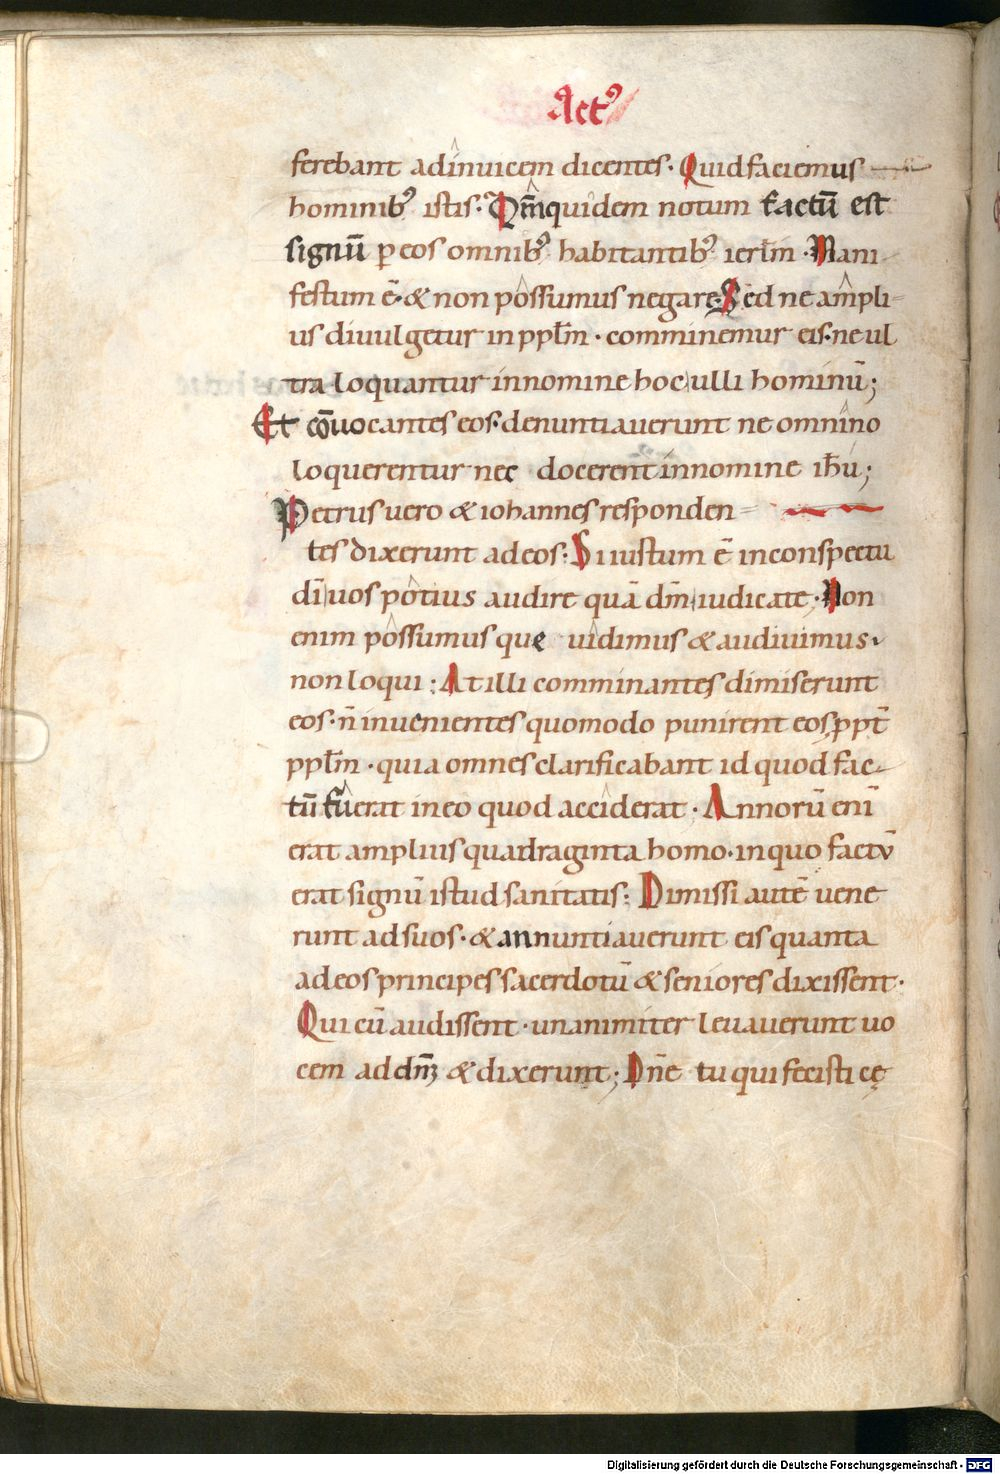 Act⁹
ferebant adinuicem dicentes· Quid faciemus
hominib⁹ istis· Qm̄ quidem notum factū est
signū ꝑ eos omnib⁹ habitantib⁹ ierl̄m · Mani
festum ē· & non possumus negare· Sed ne ampli
us diuulgetur in ppl̄m · comminemur eis· ne ul
tra loquantur in nomine hoc ulli hominū;
Et cōuocantes eos· denuntiauerunt ne omnino
loquerentur nec docerent in nomine ih̄u;
Petrus uero & iohannes responden
tes dixerunt ad eos: Si iustum ē in conspectu
dī uos potius audire quā dm̄ iudicate· Non
enim possumus quę uidimus & audiuimus·
non loqui: At illi comminantes dimiserunt
eos· n̄ inuenientes quomodo punirent eos ꝓpt̄
ppl̄m · quia omnes clarificabant id quod fac
tū fuerat in eo quod acciderat · Annorū enī
erat amplius quadraginta homo· in quo factū
erat signū istud sanitatis: Dimissi autē uene
runt ad suos· & annuntiauerunt eis quanta
ad eos principes sacerdotū & seniores dixissent·
Qui cū audissent · unanimiter leuauerunt uo
cem ad dn̄m & dixerunt; Dn̄e tu qui fecisti cę
Digitalisierung gefördert durch die Deutsche Forschungsgemeinschaft - DFG